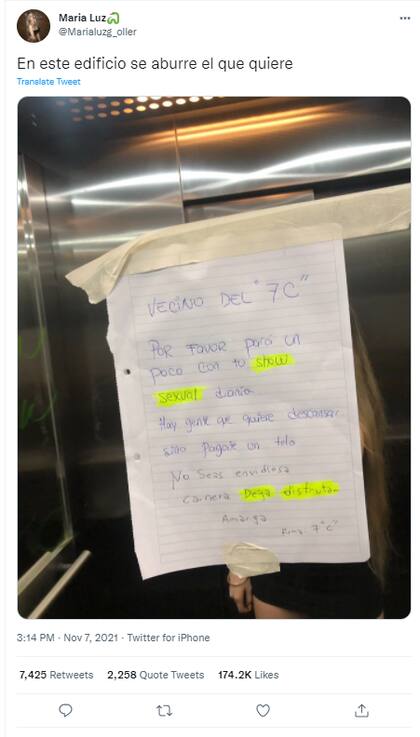 Maria Luz
@Marialuzg_oller
En este edificio se aburre el que quiere
Translate Tweet
VECINO DEL "7C"
POR FAVOR pará un
poco con tu show
sexual diario
Hay gente que quiere descansar
sino pagate un telo
No Seas envidiosa
careera Deja disfrutar
Amarga
Firma 7"C"
3:14 PM · Nov 7, 2021 · Twitter for iPhone
7,425 Retweets 2,258 Quote Tweets 174.2K Likes